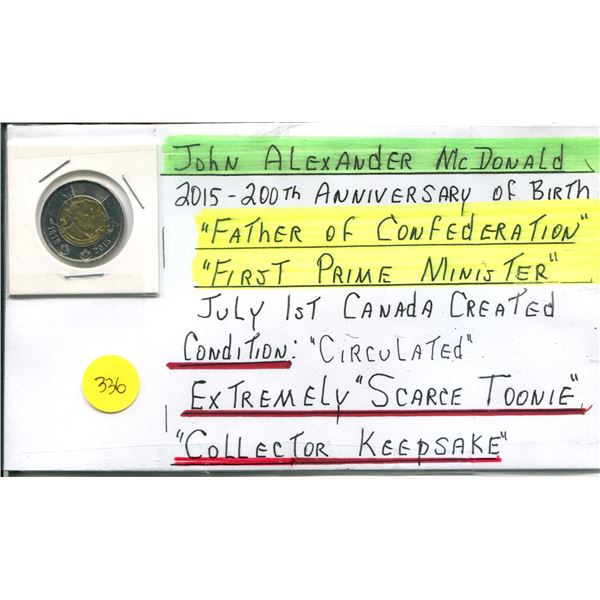 John Alexander McDonald
2015 - 200th Anniversary of Birth
"Father of Confederation"
"First Prime Minister"
July 1st Canada Created
Condition: "Circulated"
Extremely "Scarce Toonie",
"Collector Keepsake"
336
1815 2015